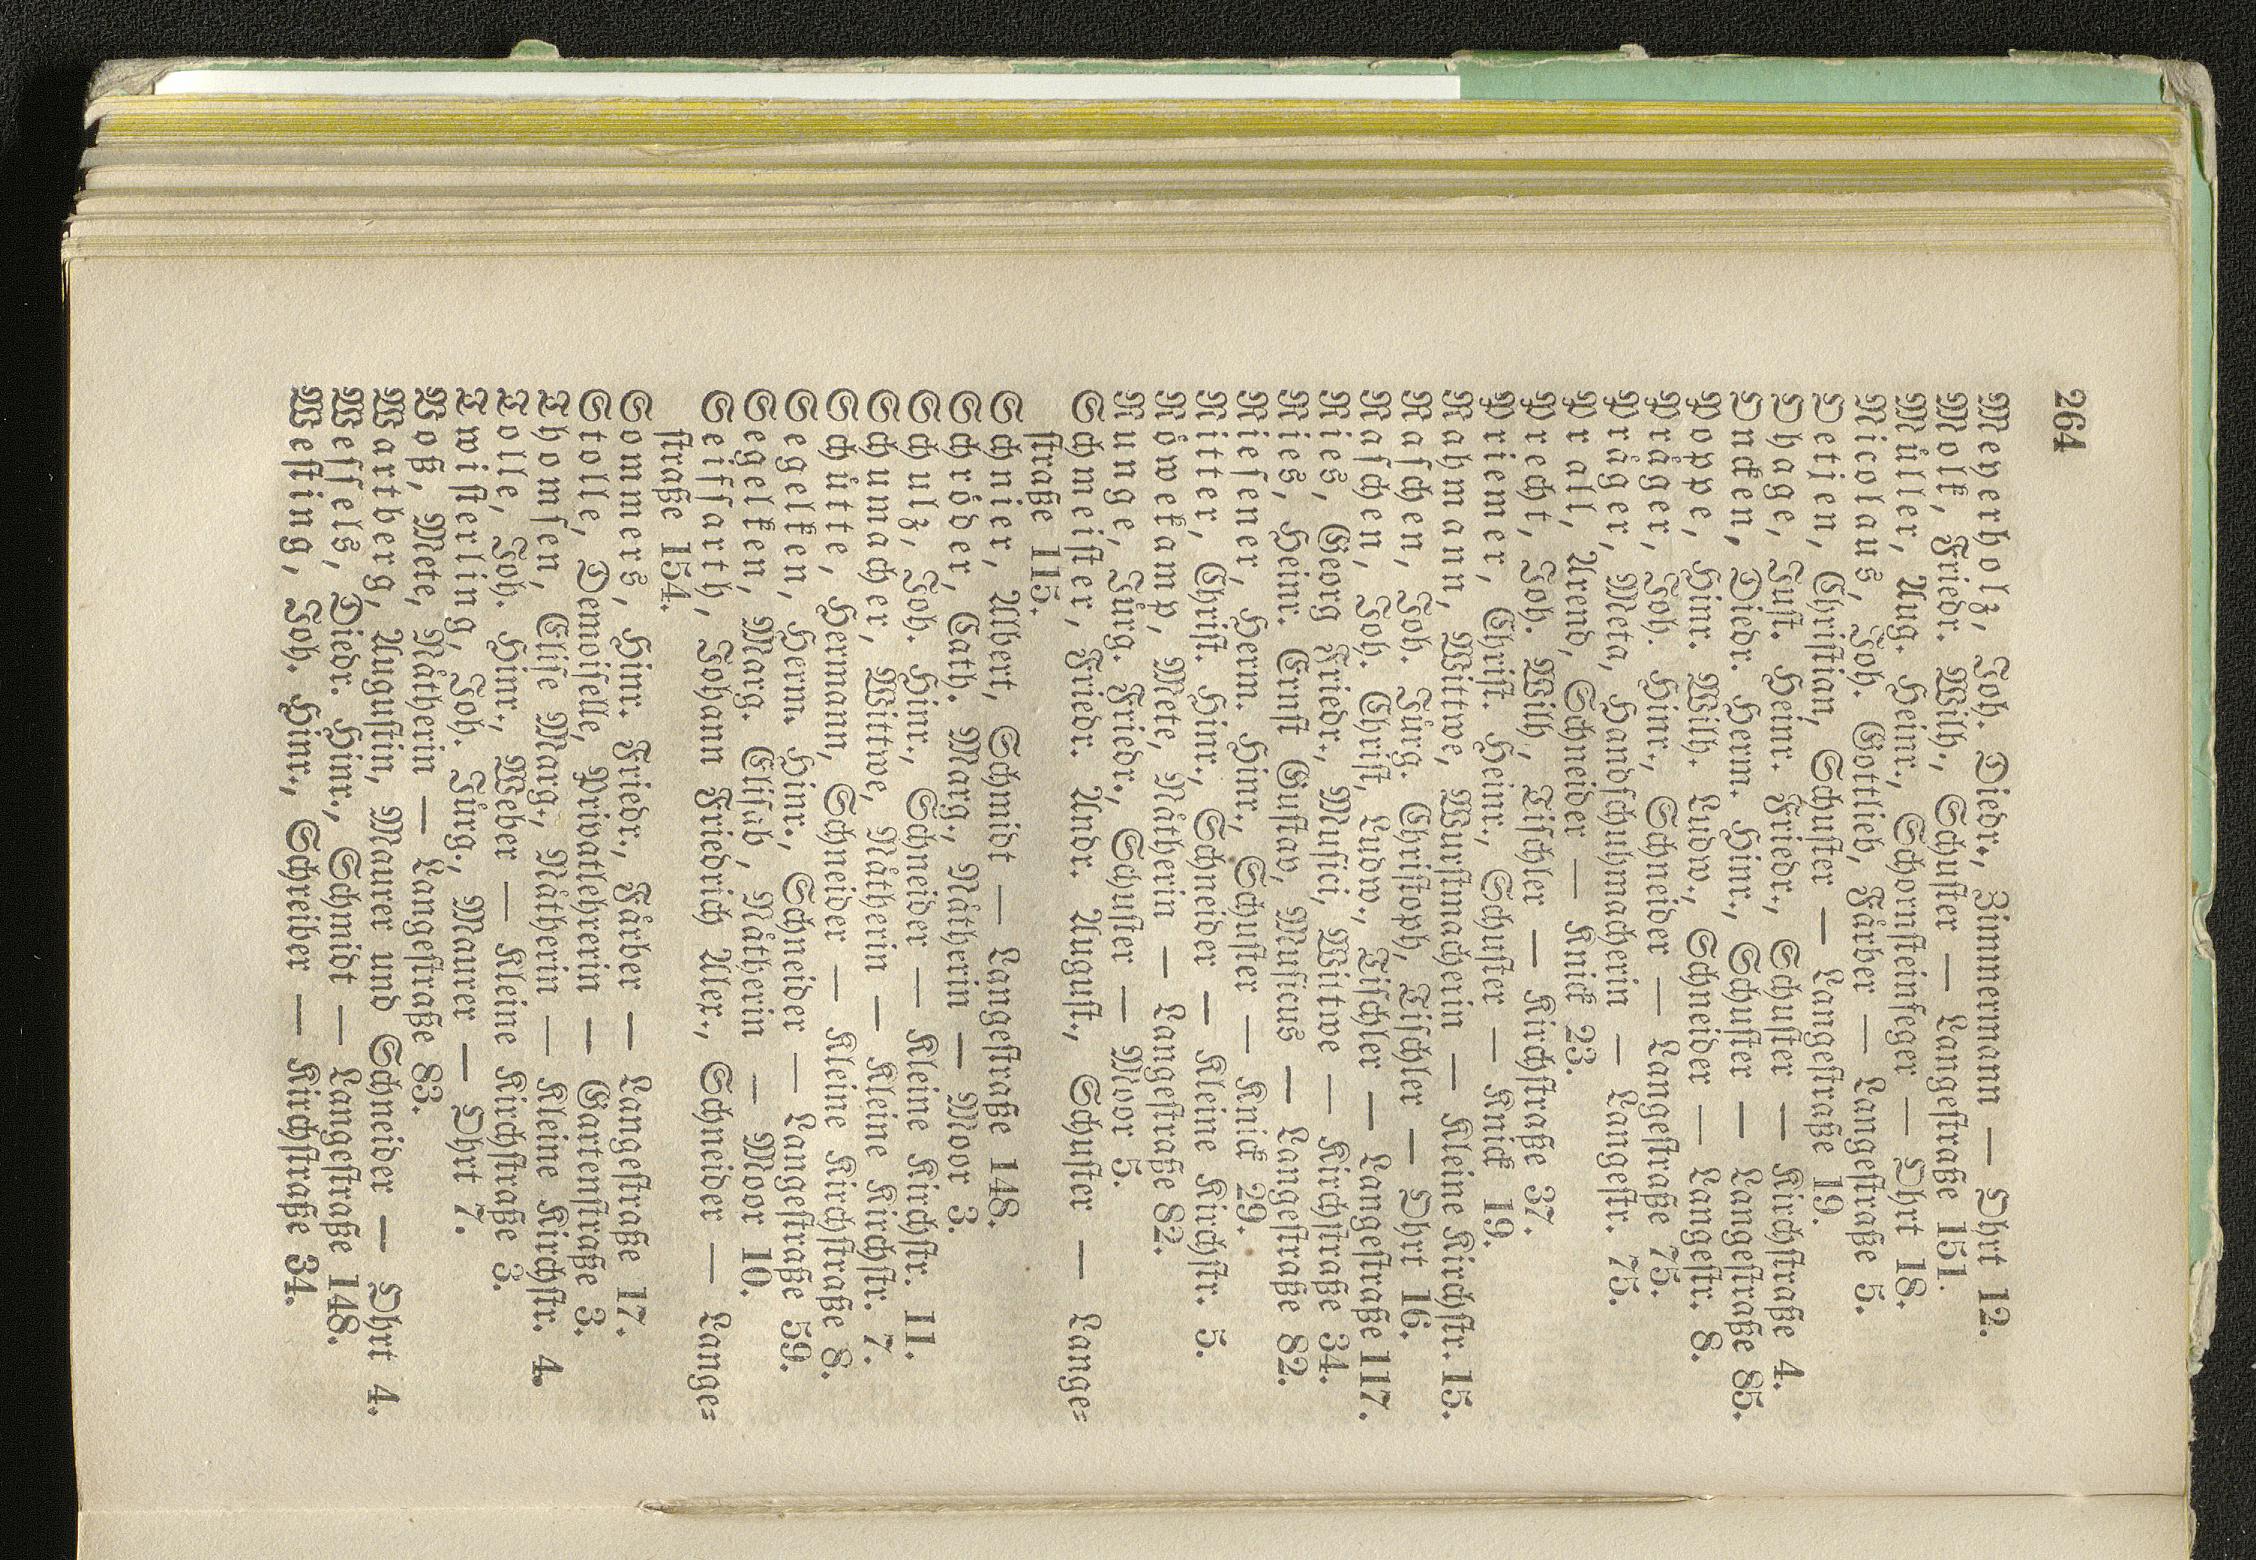 264
Meyerholz, Joh. Diedr., Zimmermann — Ohrt 12.
Molk, Friedr. Wilh., Schuster — Langestraße 151.
Müller, Aug. Heinr., Schornsteinfeger — Ohrt 18.
Nicolaus, Joh. Gottlieb, Färber — Langestraße 5.
Oetjen, Christian, Schuster — Langestraße 19.
Ohage, Just. Heinr. Friedr., Schuster — Kirchstraße 4.
Oncken, Diedr. Herm. Hinr., Schuster — Langestraße 85.
Poppe, Hinr. Wilh. Ludw., Schneider — Langestr. 8.
Präger, Joh. Hinr., Schneider — Langestraße 75.
Präger, Meta, Handschuhmacherin — Langestr. 75.
Prall, Arend, Schneider — Knick 23.
Precht, Joh. Wilh., Tischler — Kirchstraße 37.
Priemer, Christ. Heinr., Schuster — Knick 19.
Rabmann, Wittwe, Wurstmacherin — Kleine Kirchstr. 15.
Raschen, Joh. Jürg. Christoph, Tischler — Ohrt 16.
Raschen, Joh. Christ. Ludw., Tischler — Langestraße 117.
Ries, Georg Friedr., Musici, Wittwe — Kirchstraße 34.
Ries, Heinr. Ernst Gustav, Musicus — Langestraße 82.
Riesener, Herm. Hinr., Schuster — Knick 29.
Ritter, Christ. Hinr., Schneider — Kleine Kirchstr. 5.
Röwekamp, Mete, Nätherin — Langestraße 82.
Runge, Jürg. Friedr., Schuster — Moor 5.
Schmeister, Friedr. Andr. August., Schuster — Lange=
straße 115.
Schnier, Albert, Schmidt — Langestraße 148.
Schröder, Cath. Marg., Nätherin — Moor 3.
Schulz, Joh. Hinr., Schneider — Kleine Kirchstr. 11.
Schumacher, Wittwe, Nätherin — Kleine Kirchstr. 7.
Schütte, Hermann, Schneider — Kleine Kirchstraße 8.
Segelken, Herm. Hinr., Schneider — Langestraße 59.
Segelken, Marg. Elisab., Nätherin — Moor 10.
Seiffarth, Johann Friedrich Alex., Schneider — Lange=
straße 154.
Sommers, Hinr. Friedr., Färber — Langestraße 17.
Stolle, Demoiselle, Privatlehrerin — Gartenstraße 3.
Thomsen, Elise Marg., Nätherin — Kleine Kirchstr. 4.
Tolle, Joh. Hinr., Weber — Kleine Kirchstraße 3.
Twisterling, Joh. Jürg., Maurer — Ohrt 7.
Voß, Mete, Nätherin — Langestraße 83.
Wartberg, Augustin, Maurer und Schneider — Ohrt 4.
Wessels, Diedr. Hinr., Schmidt — Langestraße 148.
Westing, Joh. Hinr., Schreiber — Kirchstraße 34.